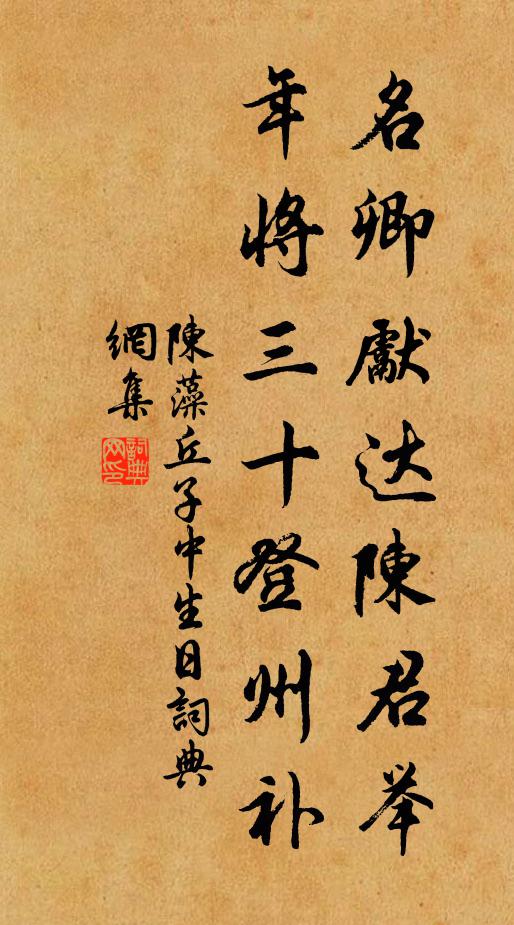 名卿獻达陳君举
年將三十登州补
陳藻丘子中生日詞典
網集
詞典网印